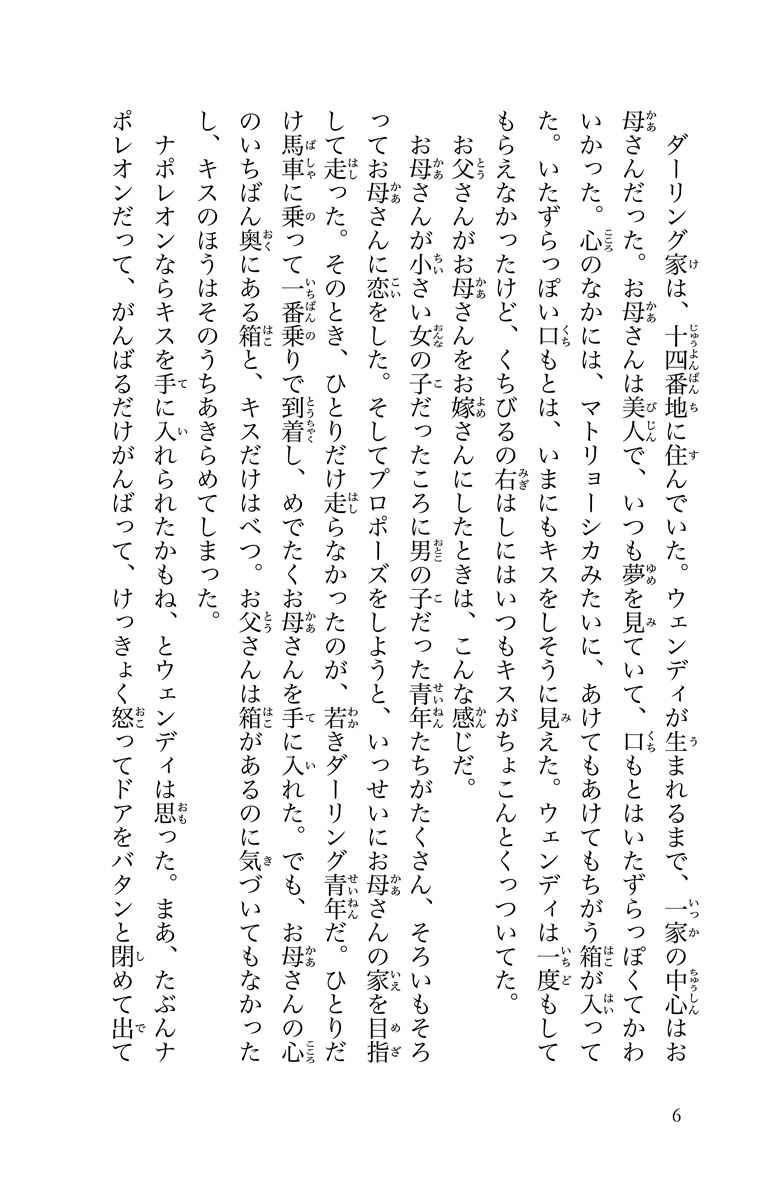 ダーリング家は、十四番地に住んでいた。ウェンディが生まれるまで、一家の中心はお
母さんだった。お母さんは美人で、いつも夢を見ていて、口もとはいたずらっぽくてかわ
いかった。心のなかには、マトリョーシカみたいに、あけてもあけてもちがう箱が入って
た。いたずらっぽい口もとは、いまにもキスをしそうに見えた。ウェンディは一度もして
もらえなかったけど、くちびるの右はしにはいつもキスがちょこんとくっついてた。
お父さんがお母さんをお嫁さんにしたときは、こんな感じだ。
お母さんが小さい女の子だったころに男の子だった青年たちがたくさん、そろいもそろ
ってお母さんに恋をした。そしてプロポーズをしようと、いっせいにお母さんの家を目指
して走った。そのとき、ひとりだけ走らなかったのが、若きダーリング青年だ。ひとりだ
け馬車に乗って一番乗りで到着し、めでたくお母さんを手に入れた。でも、お母さんの心
のいちばん奥にある箱と、キスだけはべつ。お父さんは箱があるのに気づいてもなかった
し、キスのほうはそのうちあきらめてしまった。
ナポレオンならキスを手に入れられたかもね、とウェンディは思った。まあ、たぶんナ
ポレオンだって、がんばるだけがんばって、けっきょく怒ってドアをバタンと閉めて出て
6